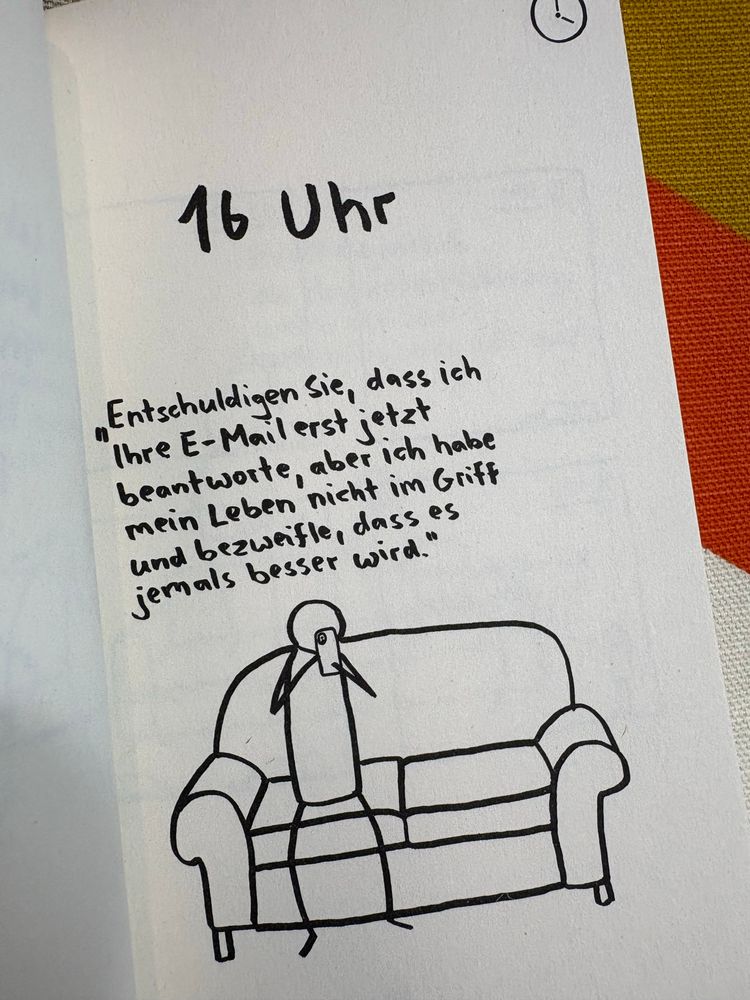 16 Uhr
„Entschuldigen Sie, dass ich
Ihre E-Mail erst jetzt
beantworte, aber ich habe
mein Leben nicht im Griff
und bezweifle, dass es
jemals besser wird."